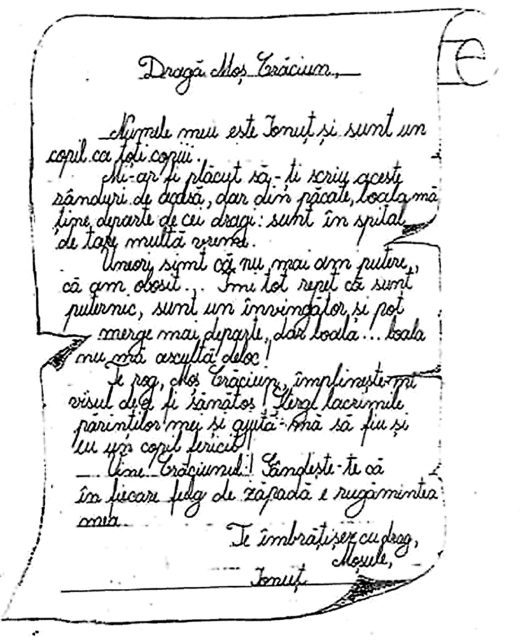 Dragă Moș Crăciun,
Numele meu este Ionuț și sunt un
copil ca toți copiii.
Mi-ar fi plăcut să-ți scriu aceste
rânduri de acasă, dar din păcate, boala mă
ține departe de cei dragi: sunt în spital
de tare multă vreme.
Uneori simt că nu mai am putere,
că am obosit... Îmi tot repet că sunt
puternic, sunt un învingător și pot
merge mai departe, dar boala... boala
nu mă ascultă deloc!
Te rog, Moș Crăciun, împlinește-mi
visul de a fi sănătos! Șterge lacrimile
părinților mei și ajută-mă să fiu și
eu un copil fericit!
Vine Crăciunul! Gândește-te că
în fiecare fulg de zăpadă e rugămintea
mea.
Te îmbrățișez cu drag,
Moșule,
Ionuț